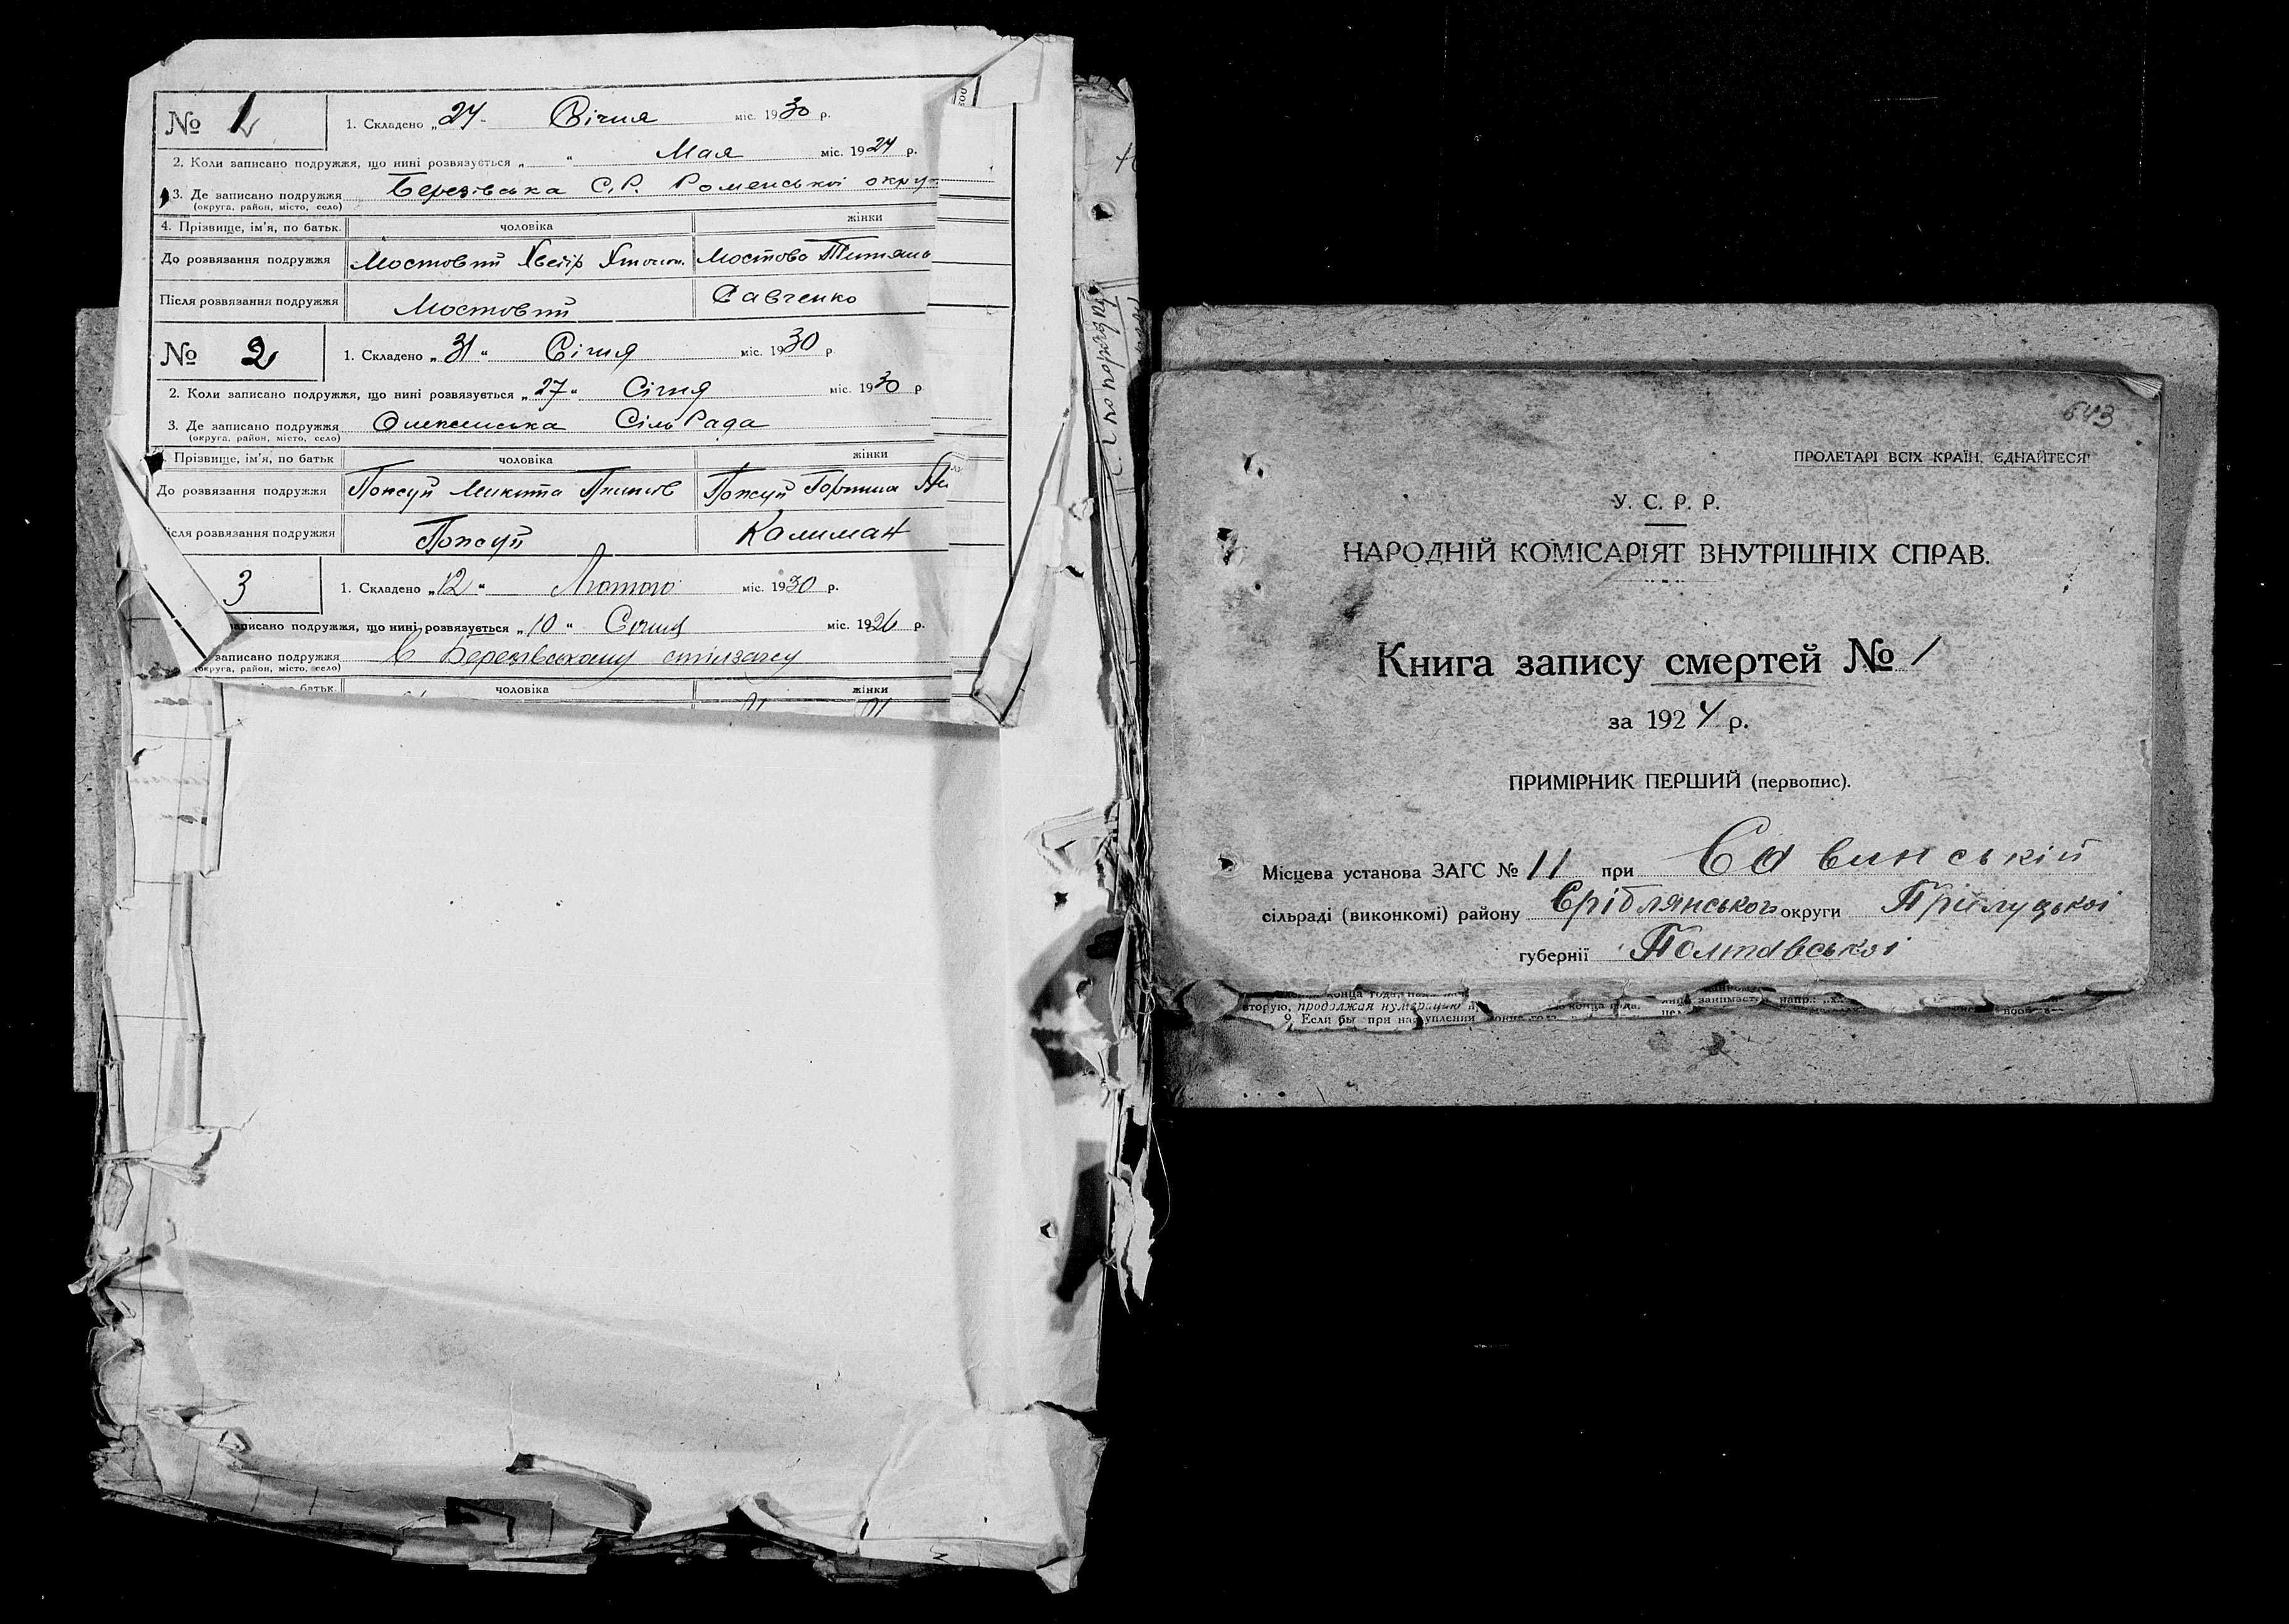 № 1
1. Складено „24" Січня міс. 1930 р.
2. Коли записано подружжя, що нині розвязується „ " Мая міс. 1924 р.
3. Де записано подружжя Березівська С.Р. Роменської округ
(округа, район, місто, село)
4. Прізвище, ім'я, по батьк. чоловіка жінки
До розвязання подружжя Мостовий Хведір Мостова Титяна
Після розвязання подружжя Мостовий Савченко
№ 2
1. Складено „31" Січня міс. 1930 р
2. Коли записано подружжя, що нині розвязується „27" Січня міс. 1930 р
3. Де записано подружжя Сіль Рада
(округа, район, місто, село)
Прізвище, ім'я, по батьк чоловіка жінки
До розвязання подружжя Микита
ісля розвязання подружжя Калиман
3
1. Складено „12" Лютого міс. 1930 р.
аписано подружжя, що нині розвязується „10" Січня міс. 1926 р.
записано подружжя в Березівському
(округа, район, місто, село)
батьк. чоловіка жінки
по порядку
643
ПРОЛЕТАРІ ВСІХ КРАЇН, ЄДНАЙТЕСЯ!
У. С. Р. Р.
НАРОДНІЙ КОМІСАРІЯТ ВНУТРІШНІХ СПРАВ.
Книга запису смертей № 1
за 1924 р.
ПРИМІРНИК ПЕРШИЙ (первопис).
Місцева установа ЗАГС № 11 при Савинській
сільраді (виконкомі) району Сріблянського округи Прілуцькоі
губернії Полтавськоі
вторую, продолжая нумерацию конца года.
9. Если бы при наступлении